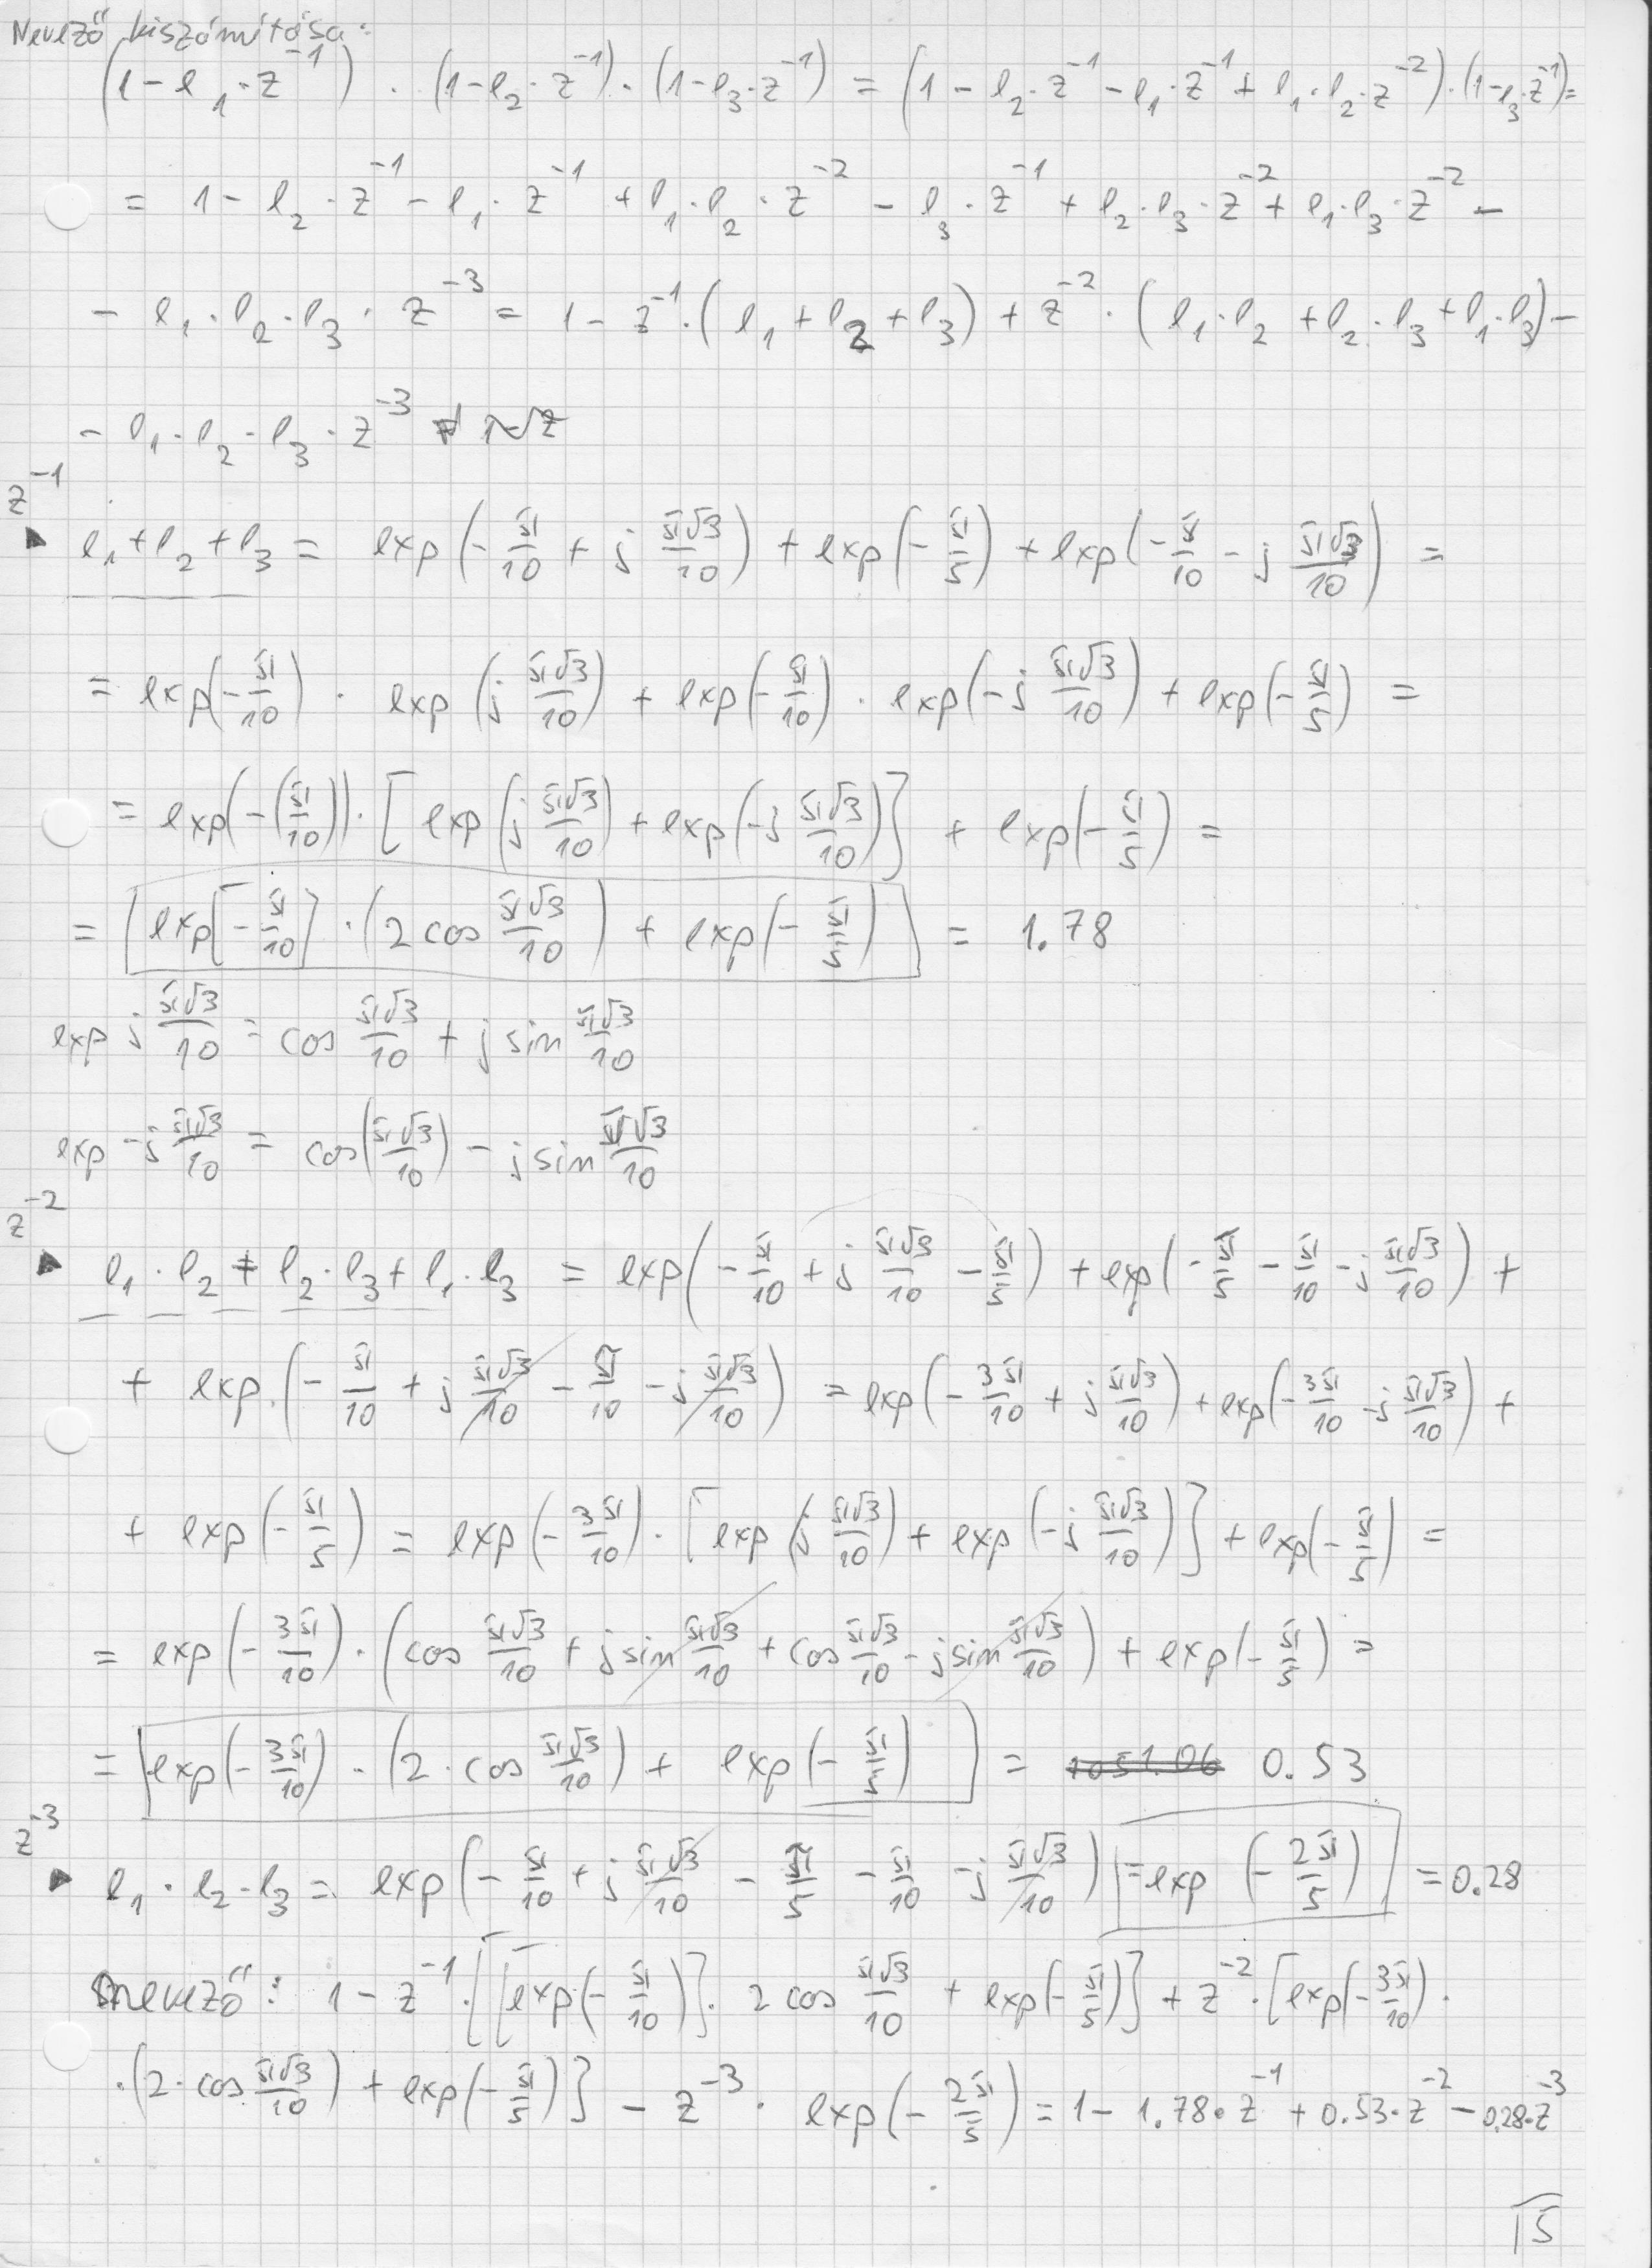 Nevező kiszámítása:
(1-e₁·z⁻¹)·(1-e₂·z⁻¹)·(1-e₃·z⁻¹) = (1-e₂·z⁻¹-e₁·z⁻¹+e₁·e₂·z⁻²)·(1-e₃·z⁻¹)=
= 1-e₂·z⁻¹-e₁·z⁻¹+e₁·e₂·z⁻²-e₃·z⁻¹+e₂·e₃·z⁻²+e₁·e₃·z⁻²-
-e₁·e₂·e₃·z⁻³ = 1-z⁻¹·(e₁+e₂+e₃)+z⁻²·(e₁·e₂+e₂·e₃+e₁·e₃)-
-e₁·e₂·e₃·z⁻³
z⁻¹
▶ e₁+e₂+e₃ = exp(-π/10 + j π√3/10) + exp(-π/5) + exp(-π/10 - j π√3/10) =
= exp(-π/10)·exp(j π√3/10) + exp(-π/10)·exp(-j π√3/10) + exp(-π/5) =
= exp(-(π/10))·[exp(j π√3/10) + exp(-j π√3/10)] + exp(-π/5) =
= exp[-π/10]·(2 cos π√3/10) + exp(-π/5) = 1.78
exp j π√3/10 = cos π√3/10 + j sin π√3/10
exp -j π√3/10 = cos(π√3/10) - j sin π√3/10
z⁻²
▶ e₁·e₂+e₂·e₃+e₁·e₃ = exp(-π/10 + j π√3/10 - π/5) + exp(-π/5 - π/10 - j π√3/10) +
+ exp.(-π/10 + j π√3/10 - π/10 - j π√3/10) = exp(-3π/10 + j π√3/10) + exp(-3π/10 - j π√3/10) +
+ exp(-π/5) = exp(-3π/10)·[exp(j π√3/10) + exp(-j π√3/10)] + exp(-π/5) =
= exp(-3π/10)·(cos π√3/10 + j sin π√3/10 + cos π√3/10 - j sin π√3/10) + exp(-π/5) =
= exp(-3π/10)·(2·cos π√3/10) + exp(-π/5) = 0.53
z⁻³
▶ e₁·e₂·e₃ = exp(-π/10 + j π√3/10 - π/5 - π/10 - j π√3/10) = exp(-2π/5) = 0.28
nevező: 1-z⁻¹·[[exp(-π/10)]·2 cos π√3/10 + exp(-π/5)] + z⁻²·[exp(-3π/10)·
·(2·cos π√3/10) + exp(-π/5)] - z⁻³·exp(-2π/5) = 1-1.78·z⁻¹+0.53·z⁻²-0.28·z⁻³
15